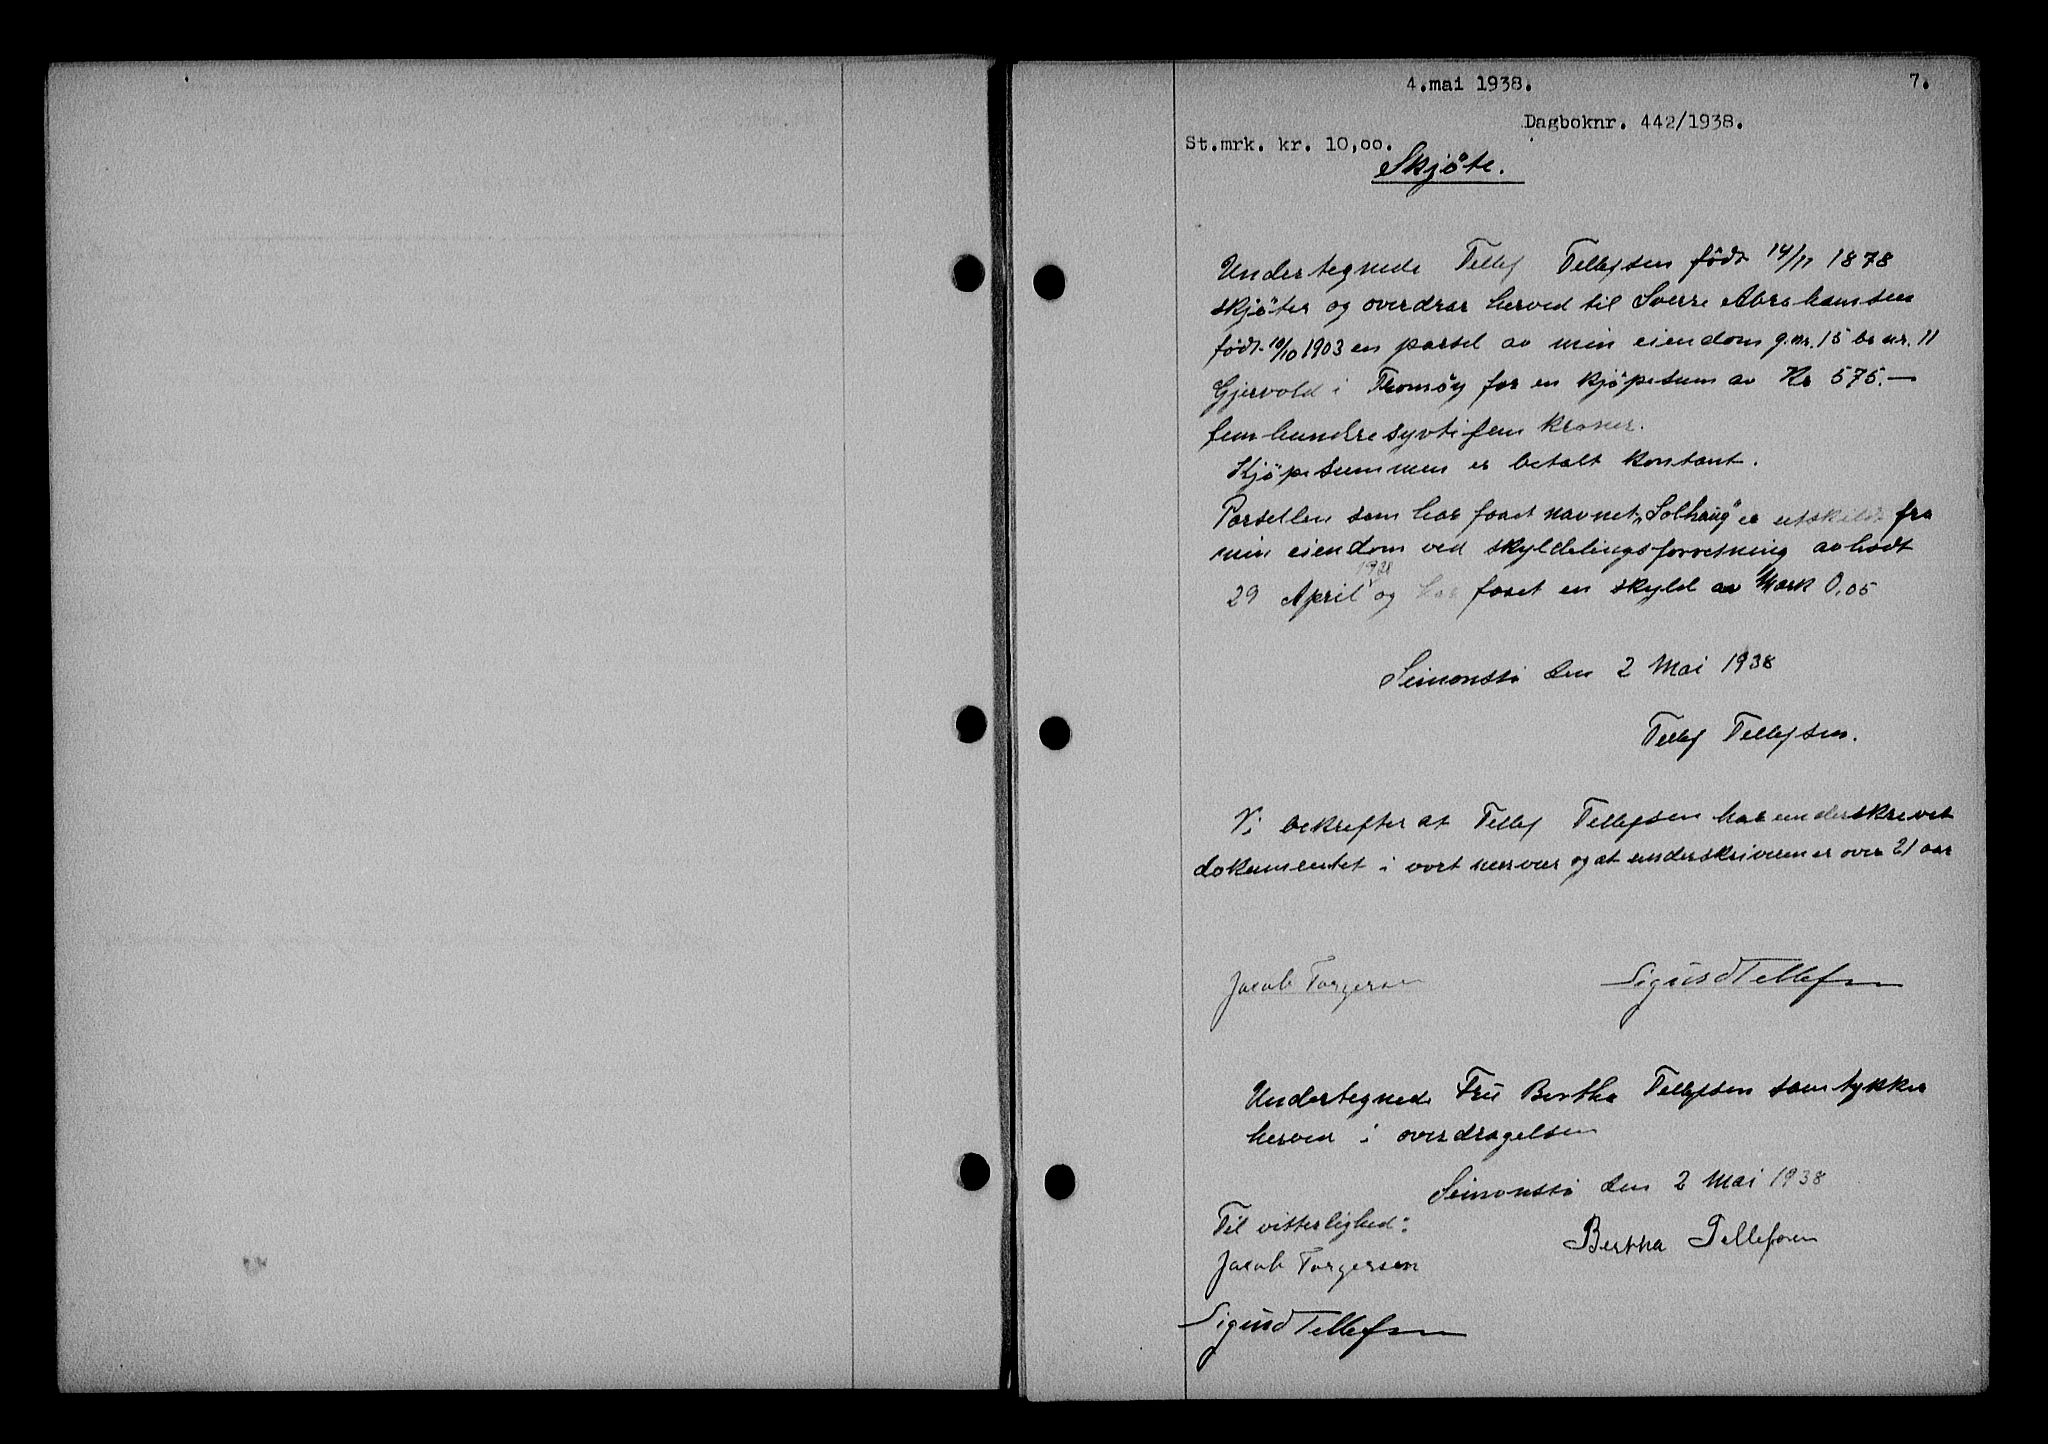 4.mai 1938.
7.
Dagboknr. 442/1938.
St.mrk. kr. 10,00.
Skjöte.
Undertegnede Tellef Tellefsen född 14/11 1878
skjöter og overdrar herved til Sverre Abrahamsen
födt 10/10 1903 en parsel av min eiendom g.nr. 15 br nr. 11
Gjervold i Tromöy for en kjöpesum av Kr 575.—
fem hundre sytti fem kroner.
Kjöpesummen er betalt kontant.
Parsellen som har faaet navnet „Solhaug" er utskilt fra
min eiendom ved skyldelingsforretning avholdt
29 April 1938 og har faaet en skyld av Mark 0,05
den 2 Mai 1938
Tellef Tellefsen.
Vi bekrefter at Tellef Tellefsen har underskrevet
dokumentet i vort nærvær og at underskriveren er over 21 aar
Jacob Torgersen
Sigurd Tellefsen
Undertegnede Fru Bertha Tellefsen samtykker
herved i overdragelsen
den 2 Mai 1938
Til vitterlighed:
Bertha Tellefsen
Jacob Torgersen
Sigurd Tellefsen